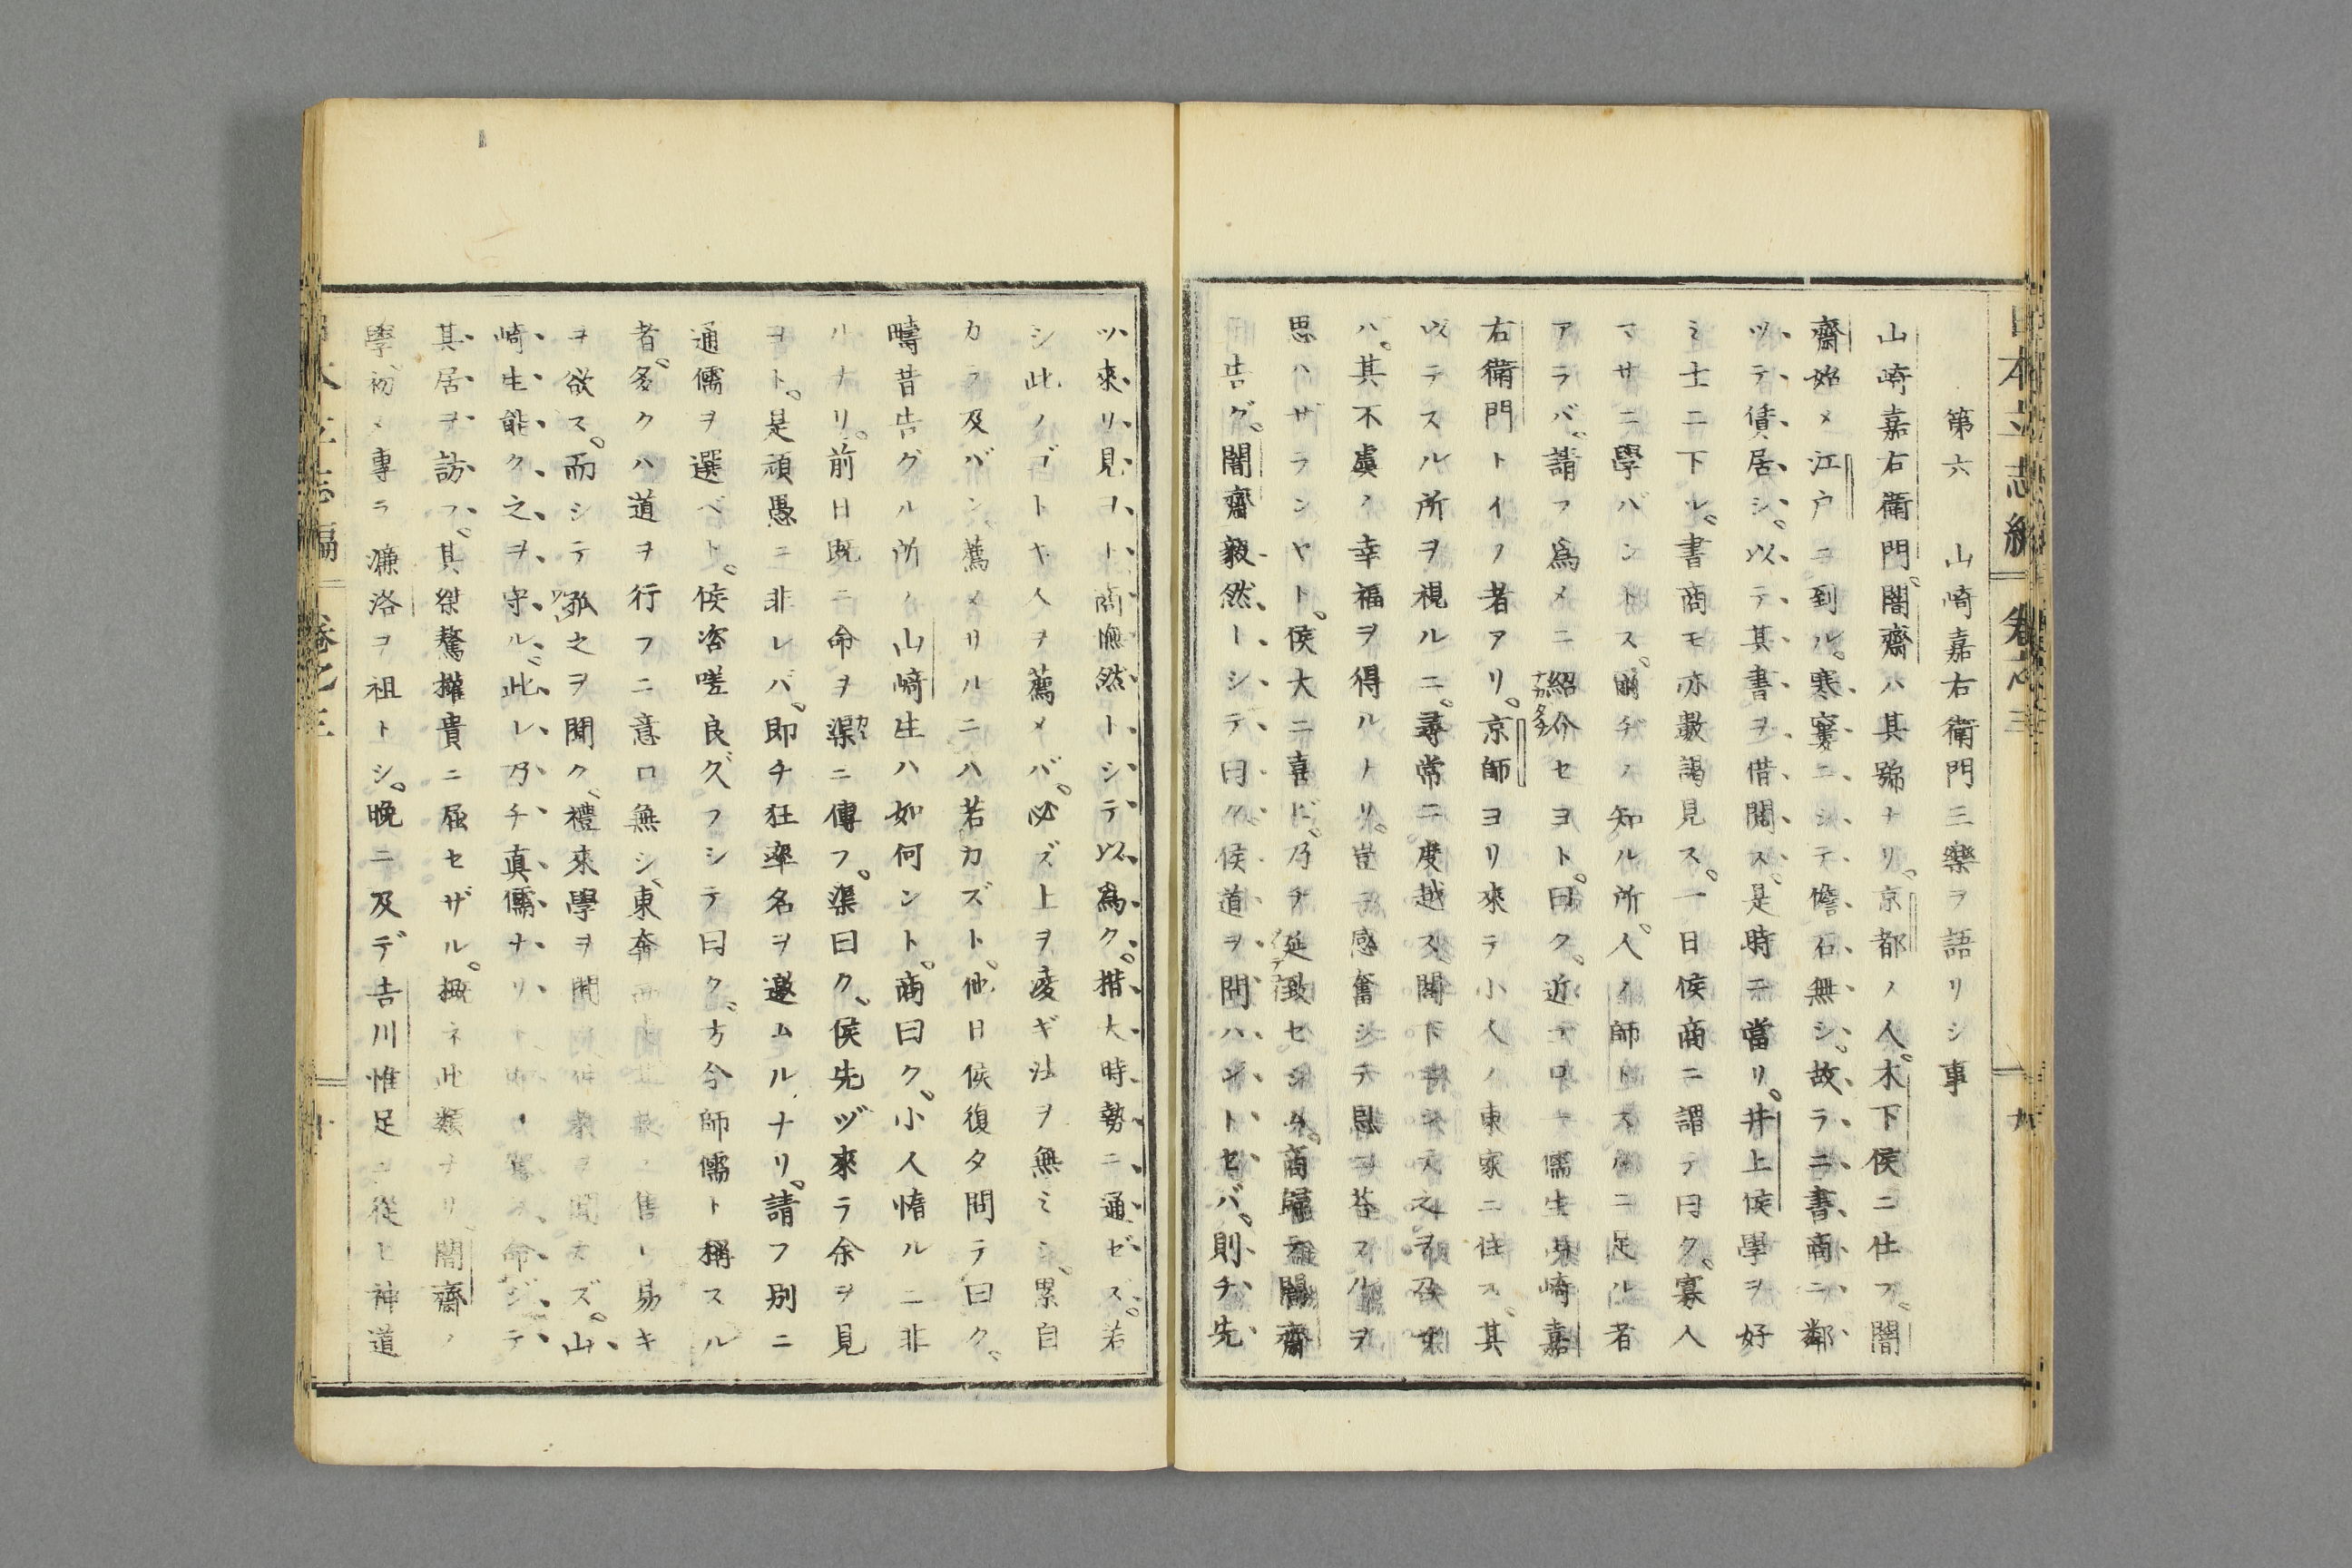 日本立志編 卷之三 九
第六 山崎嘉右衛門三樂ヲ語リシ事
山崎嘉右衛門。闇齋ハ其號ナリ。京都ノ人。木下侯ニ仕フ。闇
齋始メ江戸ニ到ル。寒窶ニシテ儋石無シ。故ラニ書商ニ鄰
ツテ賃居シ。以テ其書ヲ借閲ス。是時ニ當リ。井上侯學ヲ好
ミ士ニ下ル。書商モ亦數謁見ス。一日侯商ニ謂テ曰ク。寡人
マサニ學バントス。爾ヂノ知ル所。人ノ師トスルニ足ル者
アラバ。請フ爲メニ紹介セヨト。曰ク。近テロ一儒生山崎嘉
右衛門トイフ者アリ。京師ヨリ來テ小人ノ東家ニ住ス。其
以テスル所ヲ視ルニ。尋常ニ度越ス。閣下
ハ。其不虞ノ幸福ヲ得ルナリ。豈ニ感奮シテ恩ニ荅フルヲ
思ハザランヤト。侯大ニ喜ビ。乃チ延致セシム。商歸テ闇齋ニ
告グ。闇齋毅然トシテ曰ク。侯道ヲ問ハントセバ。則チ先
ツ來リ見ヨト。商憮然トシテ以爲ク。措大時勢ニ通ゼズ。若
シ此ノゴトキ人ヲ薦メバ。必ズ上ヲ凌ギ法ヲ無ミシ。累自
カラ及バン。薦メザルニハ若カズト。他日侯復タ問テ曰ク。
疇昔告グル所ノ山崎生ハ如何ント。商曰ク。小人惰ルニ非
ルナリ。前日既ニ命ヲ渠ニ傳フ。渠曰ク。侯先ヅ來ラ余ヲ見
ヨト。是頑愚ニ非レバ。即チ狂率名ヲ邀ムルナリ。請フ別ニ
通儒ヲ選ベト。侯咨嗟良久フシテ曰ク。方今師儒ト稱スル
者。多クハ道ヲ行フニ意ロ無シ。東奔西
ヲ欲ス。而シテ孤之ヲ聞ク。禮來學ヲ聞 山
崎生能ク之ヲ守ル。此レ乃チ真儒ナリト 命ジテ
其居ヲ訪フ。其桀驁權貴ニ屈セザル。概ネ此類ナリ。闇齋ノ
學。初メ專ラ濂洛ヲ祖トシ。晩ニ及デ吉川惟足ニ從ヒ神道
日本立志編 卷之三 十